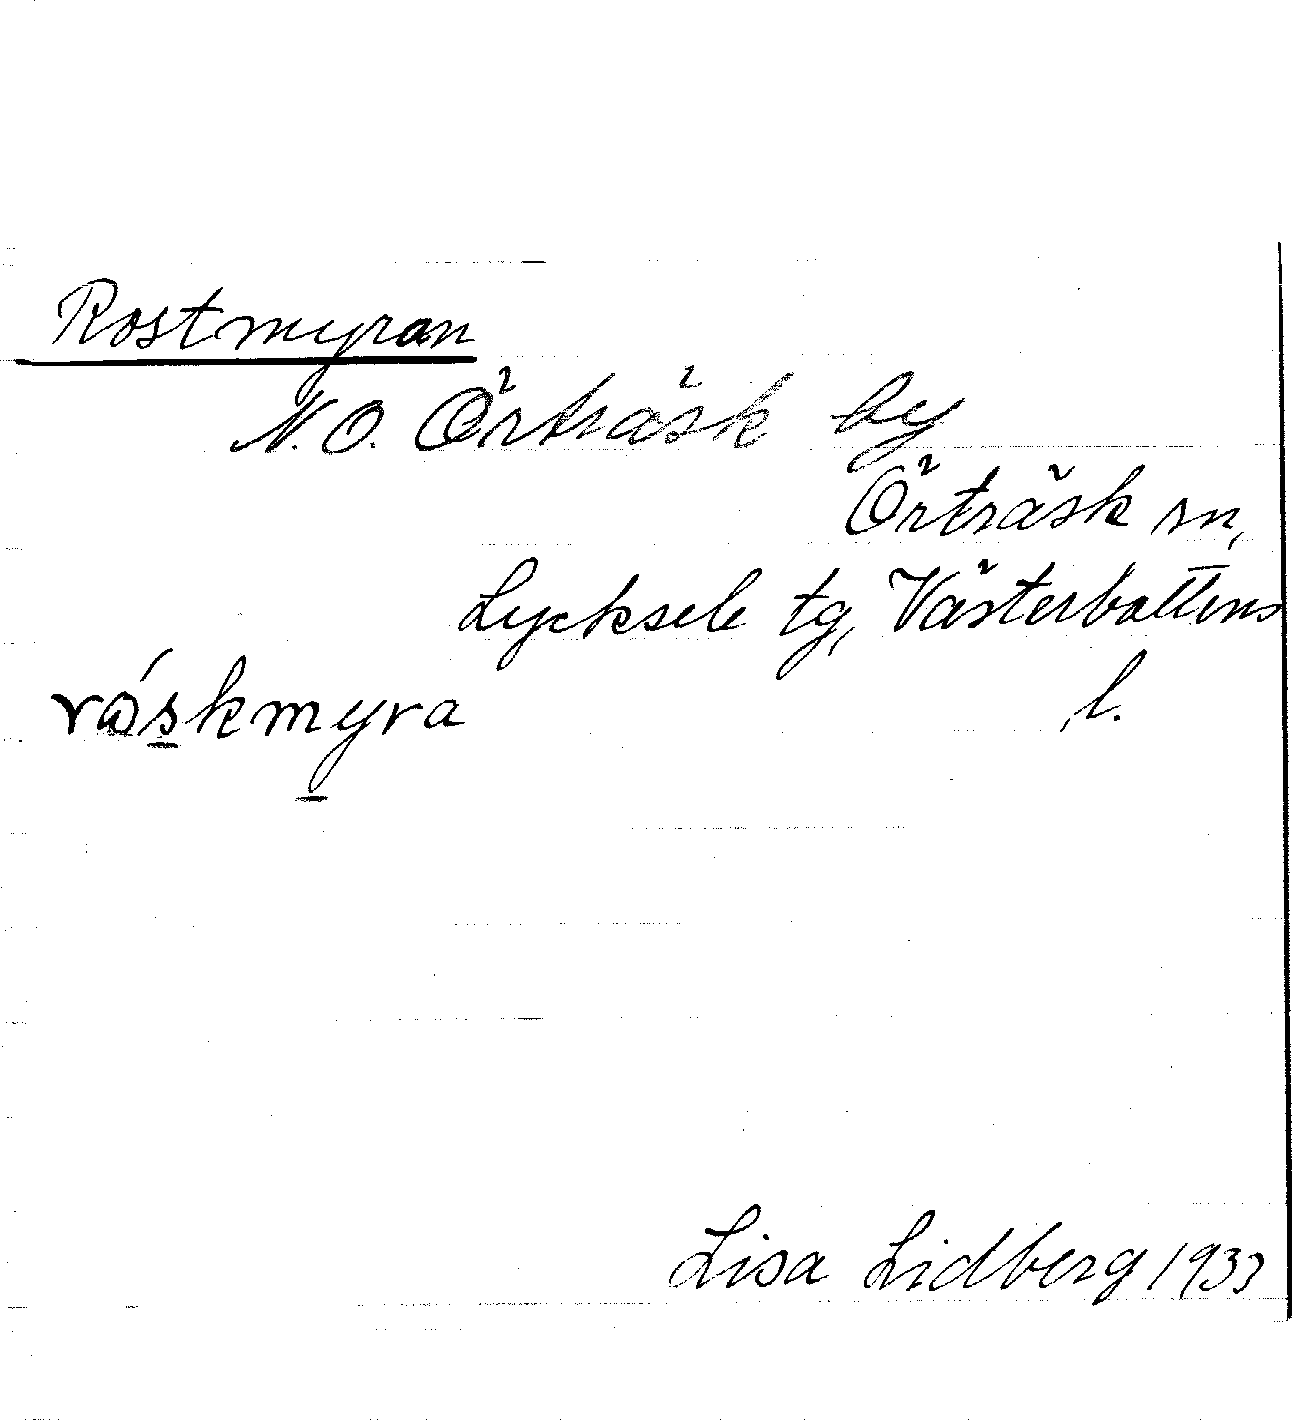 Rostmyran
N.O. Örträsk by
Örträsk sn,
Lycksele tg, Västerbottens
l.
róskmyra
Lisa Lidberg 1933